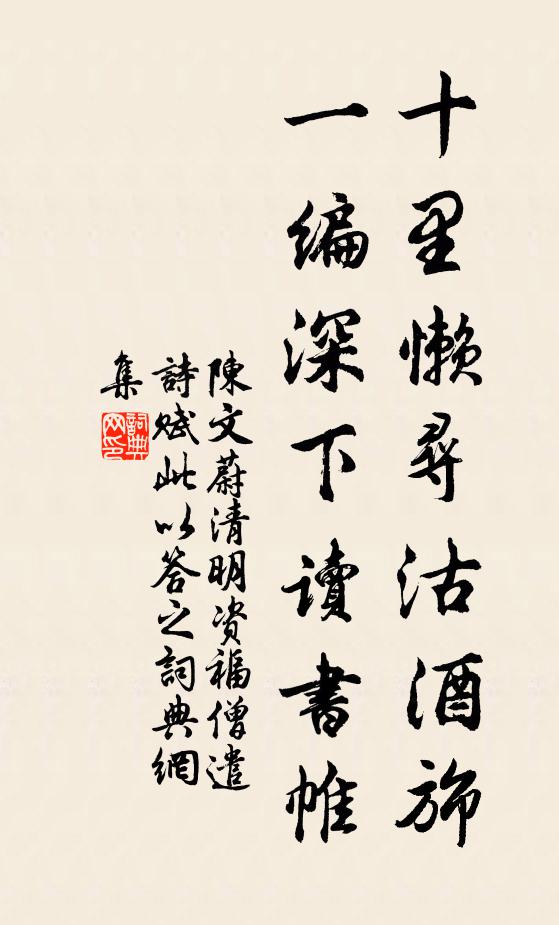 十里懒尋沽酒斾
一编深下读書帷
陳文蔚清明资福僧遣
詩赋此以答之詞典網
集
詞典网印